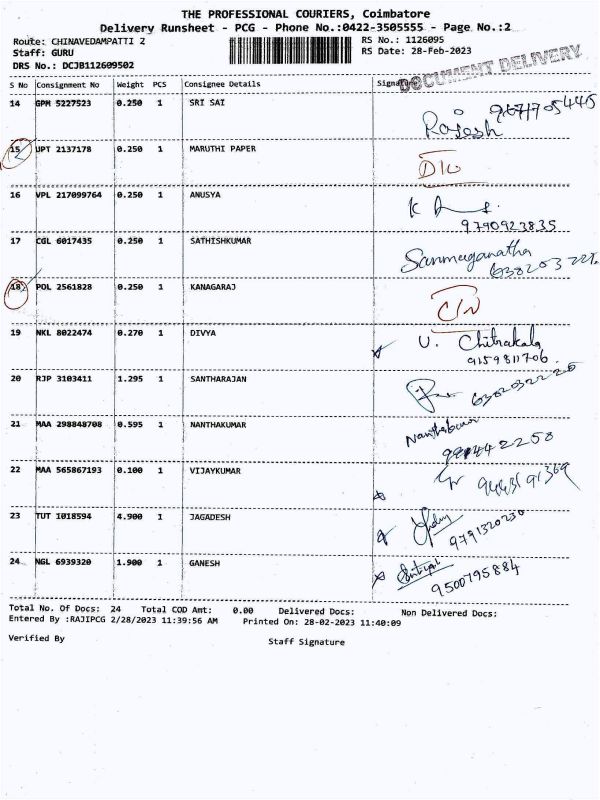 THE PROFESSIONAL COURIERS, Coimbatore
Delivery Runsheet - PCG - Phone No.:0422-3505555 - Page No.:2
Route: CHINAVEDAMPATTI 2 RS No.: 1126095
Staff: GURU RS Date: 28-Feb-2023
DRS No.: DCJB112609502
DOCUMENT DELIVERY
S No Consignment No Weight PCS Consignee Details Signature
14 GPM 5227523 0.250 1 SRI SAI
Rajesh
15 UPT 2137178 0.250 1 MARUTHI PAPER
16 VPL 217099764 0.250 1 ANUSYA
9790923835
17 CGL 6017435 0.250 1 SATHISHKUMAR
Sanmuganatha
18 POL 2561828 0.250 1 KANAGARAJ
19 NKL 8022474 0.270 1 DIVYA U. Chitrakala
9159811706
20 RJP 3103411 1.295 1 SANTHARAJAN
21 MAA 298848708 0.595 1 NANTHAKUMAR
22 MAA 565867193 0.100 1 VIJAYKUMAR
23 TUT 1018594 4.900 1 JAGADESH
9791320230
24 NGL 6939320 1.900 1 GANESH
9500795884
Total No. Of Docs: 24 Total COD Amt: 0.00 Delivered Docs: Non Delivered Docs:
Entered By :RAJIPCG 2/28/2023 11:39:56 AM Printed On: 28-02-2023 11:40:09
Verified By Staff Signature